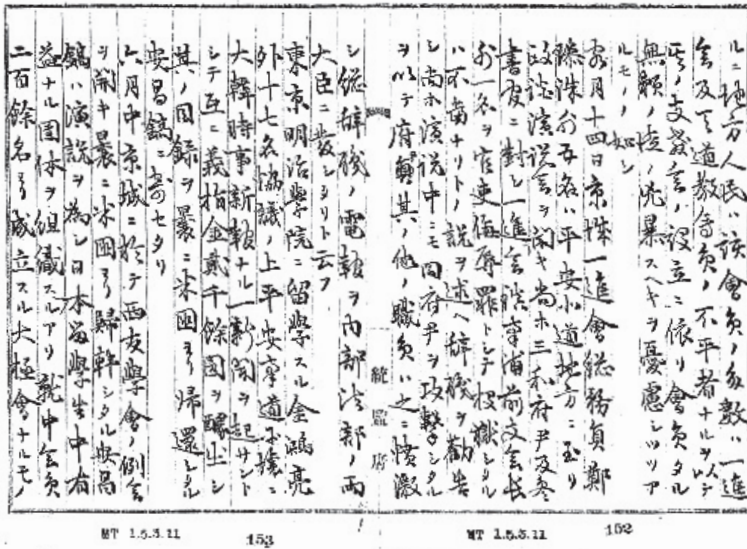 ルニ地方人民ハ該會員ノ多数ハ一進
會及天道教會員ノ不平者ナルヲ以テ
其ノ支教會ノ設立ニ依リ會員タル
無頼ノ徒ノ兇暴スヘキヲ憂慮シツツア
ルモノノ如シ
客月十四日京城一進會総務員鄭
外五名ハ平安北道地方ニ至リ
政談演説會ヲ開キ尚ホ三和府尹及
書記ニ對シ一進會鎮南浦前支會長
外一名ヲ官吏侮辱罪トシテ投獄シタル
ハ不當ナリトノ説ヲ述ヘ辞職ヲ勧告
シ尚ホ演説中ニモ同府尹ヲ攻撃シタル
ヲ以テ府尹其ノ他ノ職員ハ之ニ憤激
統監府
シ総辞職ノ電報ヲ内部法部ノ両
大臣ニ發シタリト云フ
東京明治學院ニ留學スル金鴻亮
外十七名協議ノ上平安南道
大韓時事新報ナル一新聞ヲ起サント
シテ互ニ義捐金貳千餘圓ヲ醵出シ
其ノ目録ヲ曩ニ米國ヨリ帰還シタル
安昌鎬ニ寄セタリ
六月中京城ニ於テ西友學會ノ例會
ヲ開キ曩ニ米國ヨリ歸韓シタル安昌
鎬ハ演説ヲ為シ日本留學生中有
益ナル團体ヲ組織スルアリ就中會員
二百餘名ヨリ成立スル大極會ナルモノ
MT 1.5.3.11
152
MT 1.5.3.11
153